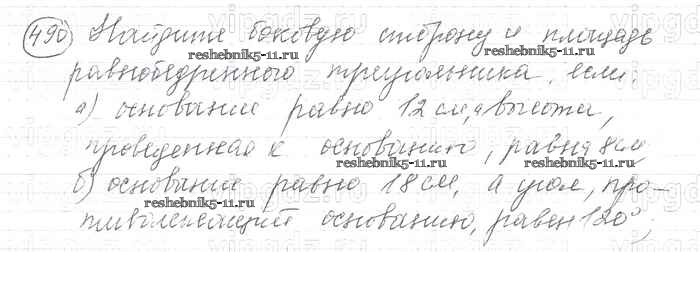 490 Найдите боковую сторону и площадь
reshebnik5-11.ru reshebnik5-11.ru
равнобедренного треугольника, если:
а) основание равно 12 см, а высота,
проведенная к основанию, равна 8 см
reshebnik5-11.ru reshebnik5-11.ru
б) основание равно 18 см, а угол, про-
reshebnik5-11.ru
тиволежащий основанию, равен 120°,